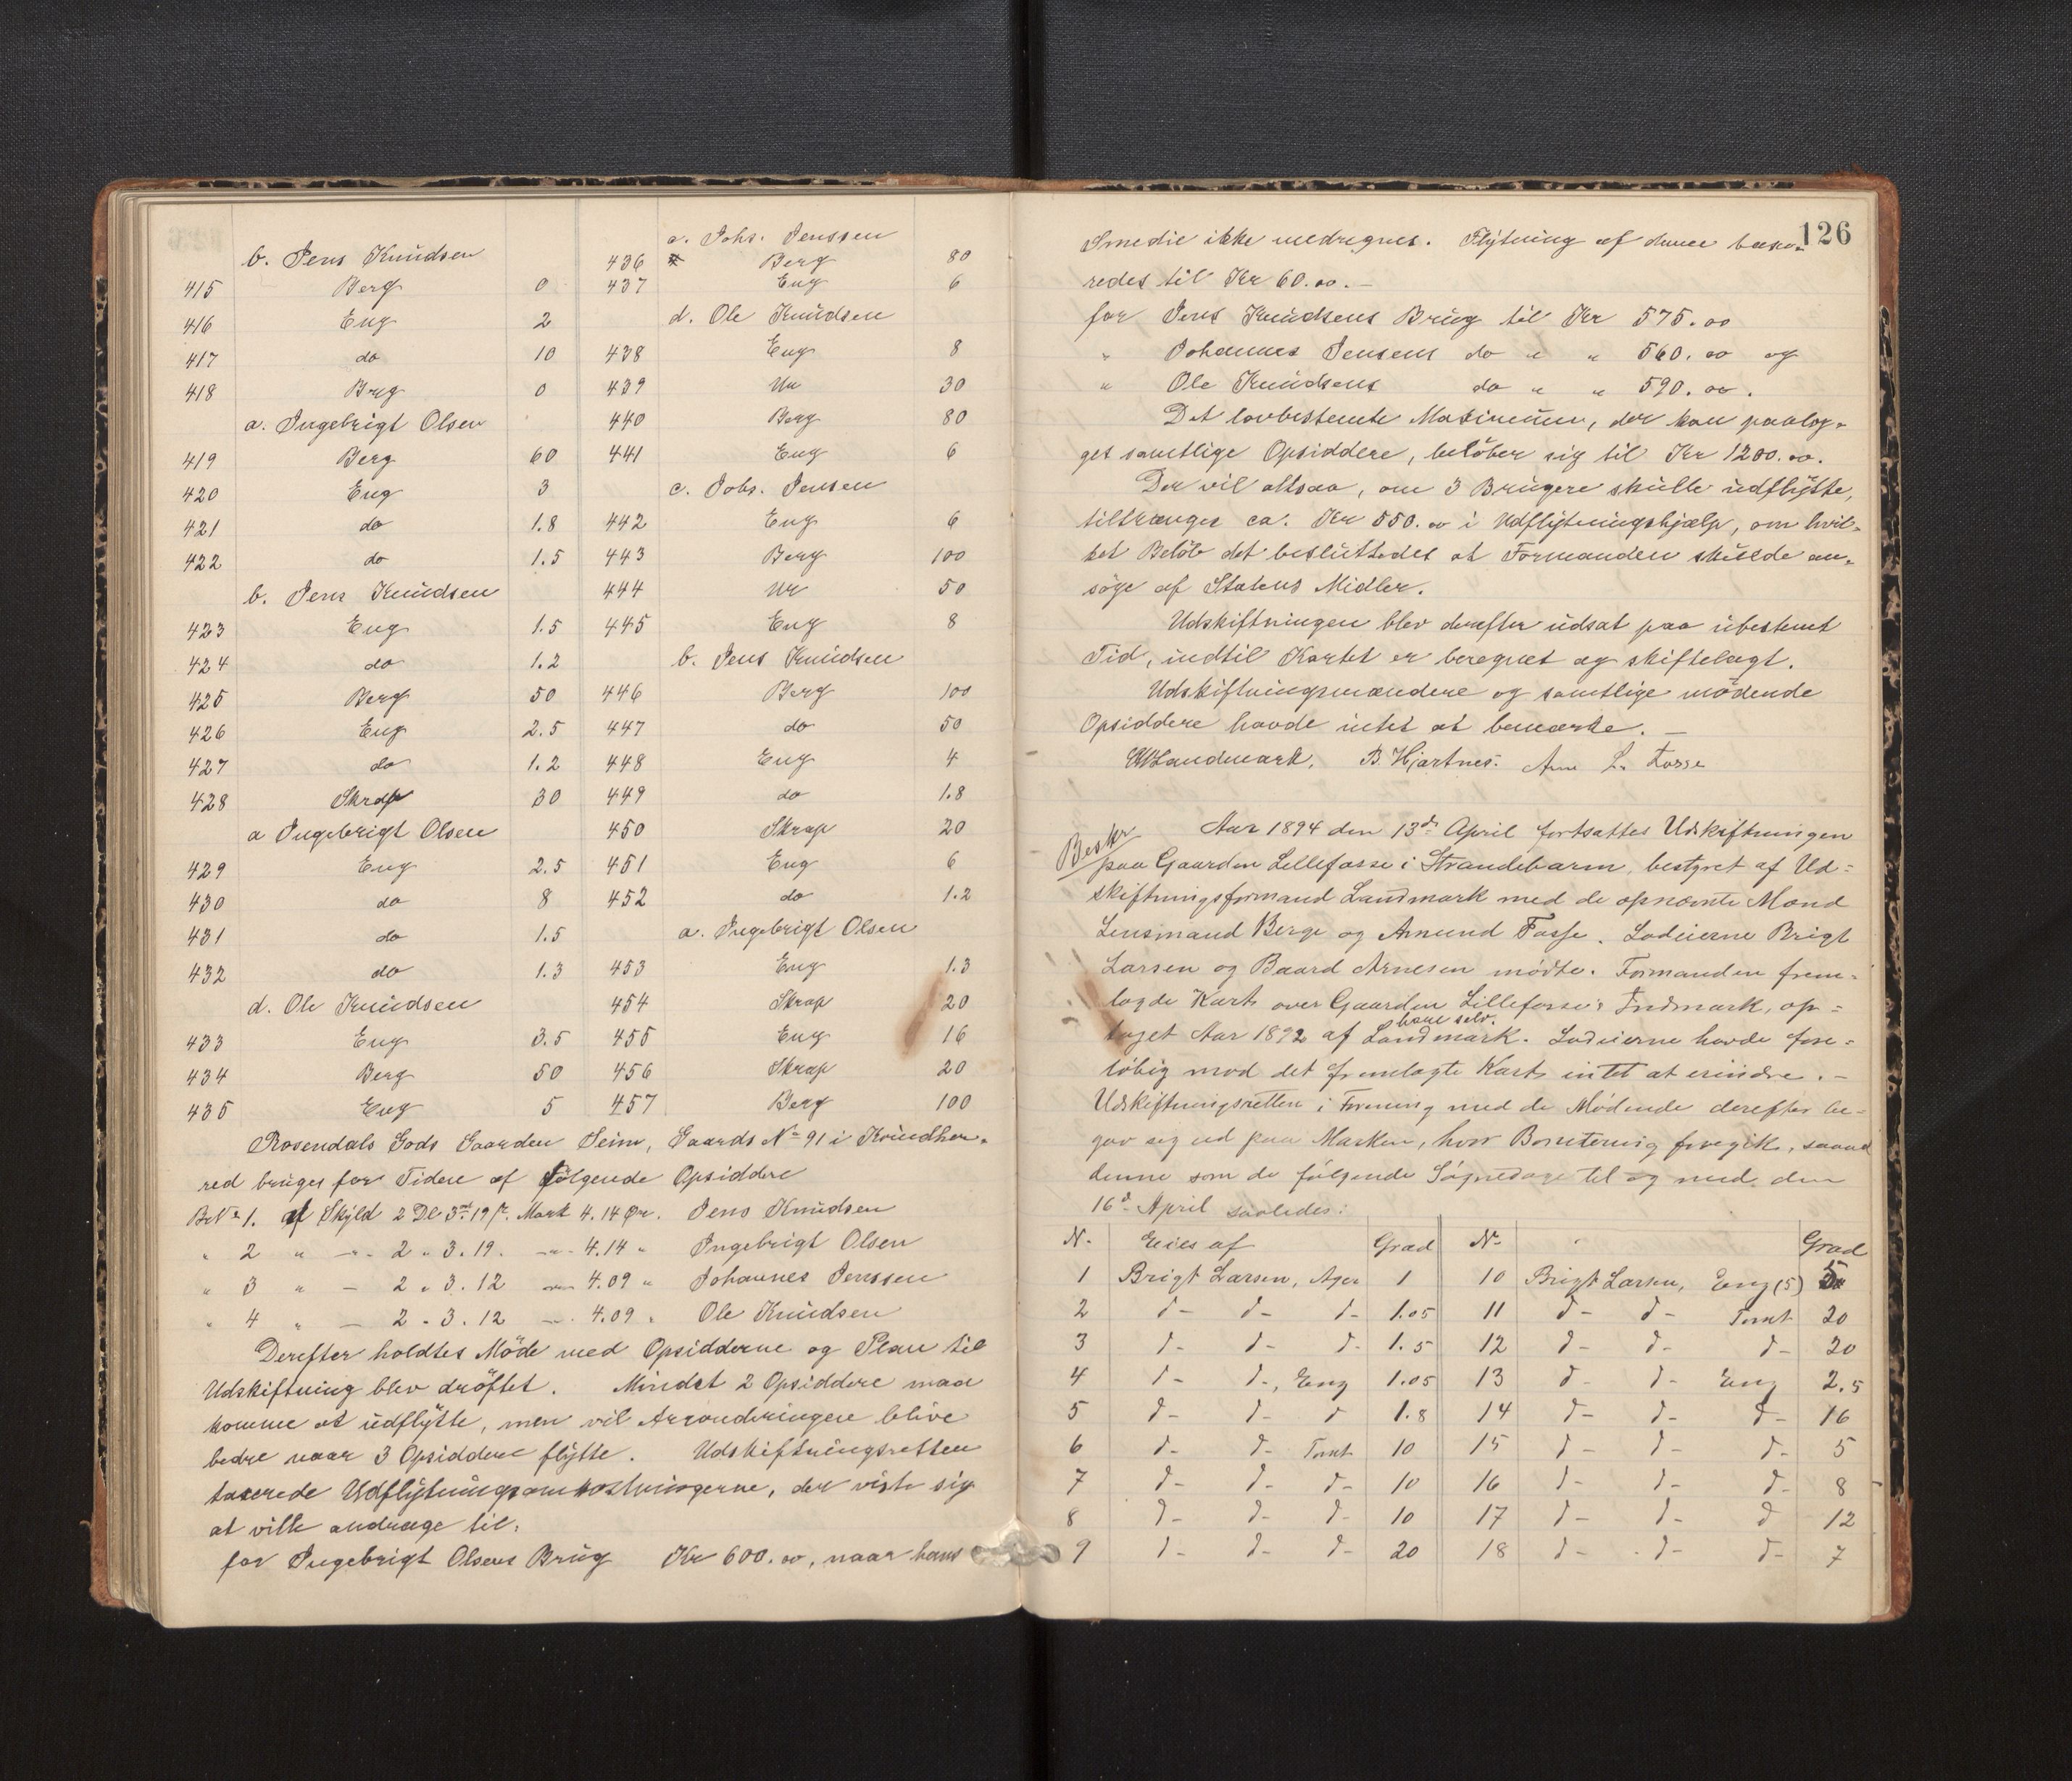 b. Jens Knudsen
415 Berg 0
416 Eng 2
417 do 10
418 Brg 0
a. Ingebrigt Olsen
419 Berg 60
420 Eng 3
421 do 1.8
422 do 1.5
b. Jens Knudsen
423 Eng 1.5
424 do 1.2
425 Berg 50
426 Eng 2.5
427 do 1.2
428 Skrap 30
a Ingebrigt Olsen
429 Eng 2.5
430 do 8
431 do 1.5
432 do 1.3
d. Ole Knudsen
433 Eng 3.5
434 Berg 50
435 Eng 5
c. Johs. Jenssen
436 Berg 80
437 Eng 6
d. Ole Knudsen
438 Eng 8
439 Ur 30
440 Berg 80
441 Eng 6
c. Johs. Jensen
442 Eng 6
443 Berg 100
444 Ur 50
445 Eng 8
b. Jens Knudsen
446 Berg 100
447 do 50
448 Eng 4
449 do 1.8
450 Skrap 20
451 Eng 6
452 do 1.2
a. Ingebrigt Olsen
453 Eng 1.3
454 Skrap 20
455 Eng 16
456 Skrap 20
457 Berg 100
Rosendals Gods Gaarden Seim, Gaards No 91 i Kvindher-
red bruges for Tiden af følgende Opsiddere
BrNo 1. af Skyld 2 Dl 3 19 Mark 4.14 Ør. Jens Knudsen
" 2 " - 2 " 3.19. - 4.14 " Ingebrigt Olsen
" 3 " - 2 " 3.12 - 4.09 " Johannes Jenssen
" 4 " - 2 " 3.12 - 4.09 " Ole Knudsen
Derefter holdtes Møde med Opsidderne og Plan til
Udskiftning blev drøftet. Mindst 2 Opsiddere maa
komme at udflytte, men vil Arronderingen blive
bedre naar 3 Opsiddere flytte. Udskiftningsretten
taxerede Udflytningsomkostningerne, der viste sig
at ville andrage til:
for Ingebrigt Olsens Brug Kr 600.00, naar hans
126
Smedie ikke medregnes. Flytning af denne taxe-
redes til Kr 60.00.-
for Jens Knudsens Brug til Kr 575.00
" Johannes Jensens do " " 560.00 og
" Ole Knudsens do " " 590.00.
Det lovbestemte Maximum, der kan paalæg-
ges samtlige Opsiddere, beløber sig til Kr 1200.00.
Der vil altsaa, om 3 Brugere skulle udflytte,
tiltrænges ca. Kr 550.00 i Udflytningshjælp, om hvil-
ket Beløb det besluttedes at Formanden skulde an-
søge af Statens Midler.
Udskiftningen blev derefter udsat paa ubestemt
Tid, indtil Kartet er beregnet og skiftelagt.
Udskiftningsmændene og samtlige mødende
Opsiddere havde intet at bemærke. -
Landmark. B. Hjartnes. Arne L. Fosse
Beskr
Aar 1894 den 13de April fortsattes Udskiftningen
paa Gaarden Lillefosse i Strandebarm, bestyret af Ud-
skiftningsformand Landmark med de opnævnte Mænd
Lensmand Berge og Amund Fosse. Lodeierne Brigt
Larsen og Baard Arnesen mødte. Formanden frem-
lagde Kart over Gaarden Lillefosse's Indmark, op-
ham selv.
taget Aar 1892 af Landmark. Lodeierne havde fore-
løbig mod det fremlagte Kart intet at erindre. -
Udskiftningsretten i Forening med de Mødende derefter be-
gav sig ud paa Marken, hvor Bonitering foregik, saavel
denne som de følgende Søgnedage til og med den
16de April saaledes:
N. Eies af Grad No Grad
1 Brigt Larsen, Ager 1 10 Brigt Larsen, Eng (5) 5
2 d- d- d- 1.05 11 d- d- Tomt 20
3 d- d- d- 1.5 12 d- d- d- 20
4 d- d-, Eng 1.05 13 d- d- Eng 2.5
5 d- d- d 1.8 14 d- d- d- 16
6 d- d- Tomt 10 15 d- d- d- 5
7 d- d- d- 10 16 d- d- d- 8
8 d- d- d- 10 17 d- d- d 12
9 d- d- d- 20 18 d- d- d- 7